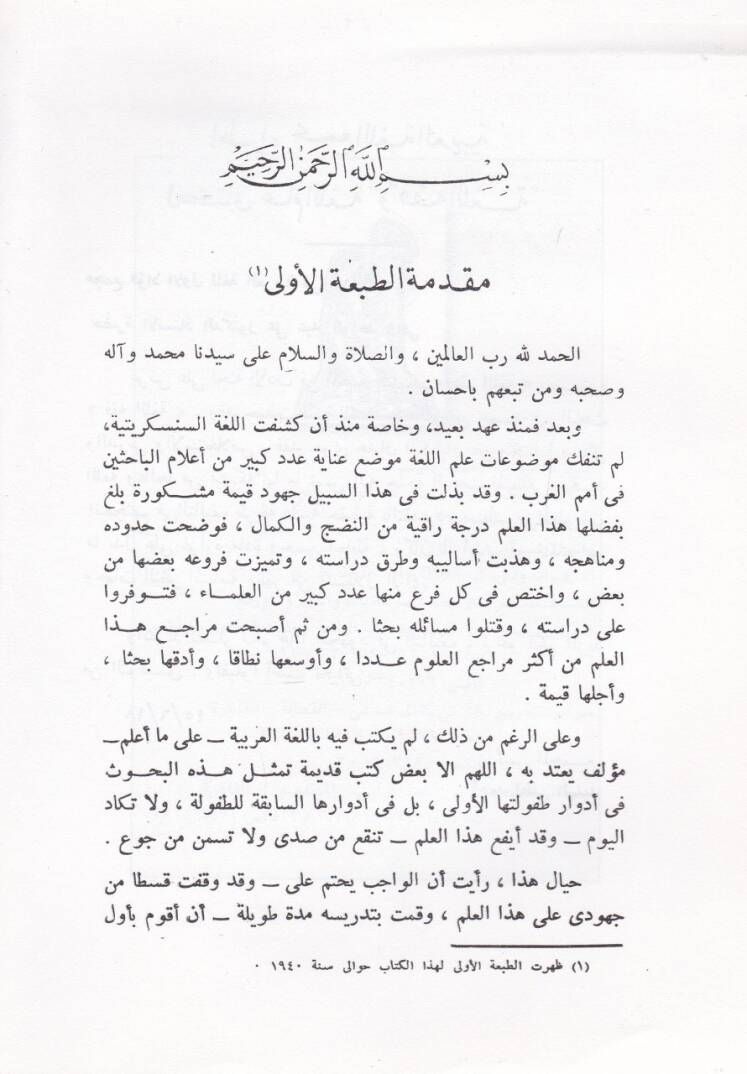 بسم الله الرحمن الرحيم
مقدمة الطبعة الأولى (١)
الحمد لله رب العالمين ، والصلاة والسلام على سيدنا محمد وآله
وصحبه ومن تبعهم باحسان .
وبعد فمنذ عهد بعيد، وخاصة منذ أن كشفت اللغة السنسكريتية،
لم تنفك موضوعات علم اللغة موضع عناية عدد كبير من أعلام الباحثين
فى أمم الغرب . وقد بذلت فى هذا السبيل جهود قيمة مشكورة بلغ
بفضلها هذا العلم درجة راقية من النضج والكمال ، فوضحت حدوده
ومناهجه ، وهذبت أساليبه وطرق دراسته ، وتميزت فروعه بعضها من
بعض ، واختص فى كل فرع منها عدد كبير من العلماء ، فتوفروا
على دراسته ، وقتلوا مسائله بحثا . ومن ثم أصبحت مراجع هذا
العلم من أكثر مراجع العلوم عددا ، وأوسعها نطاقا ، وأدقها بحثا ،
وأجلها قيمة .
وعلى الرغم من ذلك ، لم يكتب فيه باللغة العربية ـ على ما أعلم ـ
مؤلف يعتد به ، اللهم الا بعض كتب قديمة تمثل هذه البحوث
فى أدوار طفولتها الأولى ، بل فى أدوارها السابقة للطفولة ، ولا تكاد
اليوم ـ وقد أيفع هذا العلم ـ تنقع من صدى ولا تسمن من جوع .
حيال هذا ، رأيت أن الواجب يحتم على ـ وقد وقفت قسطا من
جهودى على هذا العلم ، وقمت بتدريسه مدة طويلة ـ أن أقوم بأول
(١) ظهرت الطبعة الأولى لهذا الكتاب حوالى سنة ١٩٤٠ .